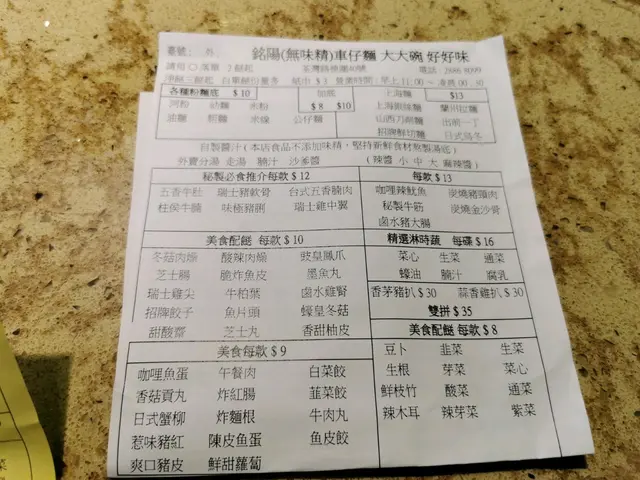 臺號： 外 銘陽(無味精)車仔麵 大大碗 好好味
請用○落單 2餸起 電話：2686 8099
淨餸三餸起 自單餸份量多 紙巾 $3 營業時間：早上 11:00 ~ 凌晨 00:30
各種粉麵底 $10 加底 上海麵 $13
河粉 幼麵 米粉 $8 $10 上海粗線麵 蘭州拉麵
油麵 粗麵 米線 公仔麵 山西刀削麵 出前一丁
招牌鮮切麵 日式烏冬
自製醬汁(本店食品不添加味精，堅持新鮮食材熬製湯底)
外賣分湯 走湯 腩汁 沙爹醬 (辣醬 小 中 大 麻辣醬)
秘製必食推介每款 $12 每款 $13
五香牛肚 瑞士豬軟骨 台式五香腩肉 咖哩辣魷魚 炭燒豬頸肉
柱侯牛腩 味極豬脷 瑞士雞中翼 秘製牛筋 炭燒金沙骨
鹵水豬大腸
美食配餸 每款 $10 精選淋時蔬 每碟 $16
冬菇肉燥 酸辣肉燥 豉皇鳳爪 菜心 生菜 通菜
芝士腸 脆炸魚皮 墨魚丸 蠔油 腩汁 腐乳
瑞士雞尖 牛柏葉 鹵水雞腎 香茅豬扒 $30 蒜香雞扒 $30
招牌餃子 魚片頭 蠔皇冬菇 雙拼 $35
甜酸齋 芝士丸 香甜柚皮 美食配餸 每款 $8
美食每款 $9 豆卜 韭菜 生菜
咖哩魚蛋 午餐肉 白菜餃 生根 芽菜 菜心
香菇貢丸 炸紅腸 韮菜餃 鮮枝竹 酸菜 通菜
日式蟹柳 炸麵根 牛肉丸 辣木耳 辣芽菜 紫菜
惹味豬紅 陳皮魚蛋 魚皮餃
爽口豬皮 鮮甜蘿蔔
菜